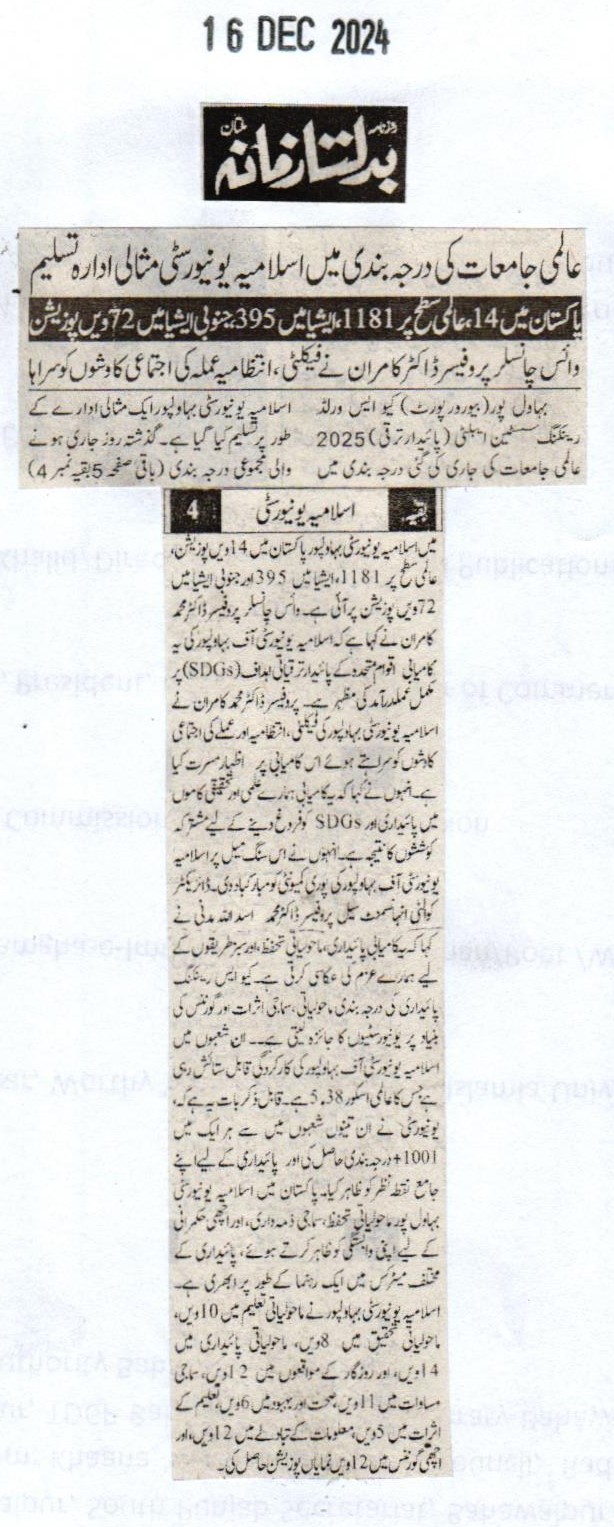 16 DEC 2024
روزنامہ بدلتا زمانہ ملتان
عالمی جامعات کی درجہ بندی میں اسلامیہ یونیورسٹی مثالی ادارہ تسلیم
پاکستان میں 14، عالمی سطح پر 1181، ایشیا میں 395، جنوبی ایشیا میں 72ویں پوزیشن
وائس چانسلر پروفیسر ڈاکٹر کامران نے فیکلٹی، انتظامیہ عملہ کی اجتماعی کاوشوں کو سراہا
بہاول پور (بیورو رپورٹ) کیو ایس ورلڈ
رینکنگ سسٹین ایبلٹی (پائیدار ترقی) 2025
عالمی جامعات کی جاری کی گئی درجہ بندی میں
اسلامیہ یونیورسٹی بہاولپور ایک مثالی ادارے کے
طور پر تسلیم کیا گیا ہے۔ گذشتہ روز جاری ہونے
والی مجموعی درجہ بندی (باقی صفحہ 5 بقیہ نمبر 4)
بقیہ اسلامیہ یونیورسٹی 4
میں اسلامیہ یونیورسٹی بہاولپور پاکستان میں 14ویں پوزیشن،
عالمی سطح پر 1181، ایشیا میں 395 اور جنوبی ایشیا میں
72ویں پوزیشن پر آئی ہے۔ وائس چانسلر پروفیسر ڈاکٹر محمد
کامران نے کہا ہے کہ اسلامیہ یونیورسٹی آف بہاولپور کی یہ
کامیابی اقوام متحدہ کے پائیدار ترقیاتی اہداف (SDGs) پر
مکمل عملدرآمد کی مظہر ہے۔ پروفیسر ڈاکٹر محمد کامران نے
اسلامیہ یونیورسٹی بہاولپور کی فیکلٹی، انتظامیہ اور عملے کی اجتماعی
کاوشوں کو سراہتے ہوئے اس کامیابی پر اظہار مسرت کیا
ہے۔ انہوں نے کہا کہ یہ کامیابی ہمارے علمی اور تحقیقی کاموں
میں پائیداری اور SDGs کو فروغ دینے کے لیے مشترکہ
کوششوں کا نتیجہ ہے۔ انہوں نے اس سنگ میل پر اسلامیہ
یونیورسٹی آف بہاولپور کی پوری کمیونٹی کو مبارکباد دی۔ ڈائریکٹر
کوالٹی انہانسمنٹ سیل پروفیسر ڈاکٹر محمد اسد اللہ مدنی نے
کہا کہ یہ کامیابی پائیداری، ماحولیاتی تحفظ، اور سبز طریقوں کے
لیے ہمارے عزم کی عکاسی کرتی ہے۔ کیو ایس رینکنگ
پائیداری کی درجہ بندی ماحولیاتی، سماجی اثرات اور گورننس کی
بنیاد پر یونیورسٹیوں کا جائزہ لیتی ہے۔۔ ان شعبوں میں
اسلامیہ یونیورسٹی آف بہاولپور کی کارکردگی قابل ستائش رہی
ہے جس کا عالمی اسکور 38.5 ہے۔ قابل ذکر بات یہ ہے کہ،
یونیورسٹی نے ان تینوں شعبوں میں سے ہر ایک میں
1001+ درجہ بندی حاصل کی اور پائیداری کے لیے اپنے
جامع نقطہ نظر کو ظاہر کیا۔ پاکستان میں اسلامیہ یونیورسٹی
بہاول پور ماحولیاتی تحفظ، سماجی ذمہ داری، اور اچھی حکمرانی
کے لیے اپنی وابستگی کو ظاہر کرتے ہوئے، پائیداری کے
مختلف میٹرکس میں ایک رہنما کے طور پر ابھری ہے۔
اسلامیہ یونیورسٹی بہاولپور نے ماحولیاتی تعلیم میں 10ویں،
ماحولیاتی تحقیق میں 8ویں، ماحولیاتی پائیداری میں
14ویں، اور روزگار کے مواقعوں میں 12ویں، سماجی
مساوات میں 11ویں، صحت اور بہبود میں 6ویں، تعلیم کے
اثرات میں 5ویں، معلومات کے تبادلے میں 12ویں، اور
اچھی گورننس میں 12ویں نمایاں پوزیشن حاصل کی۔